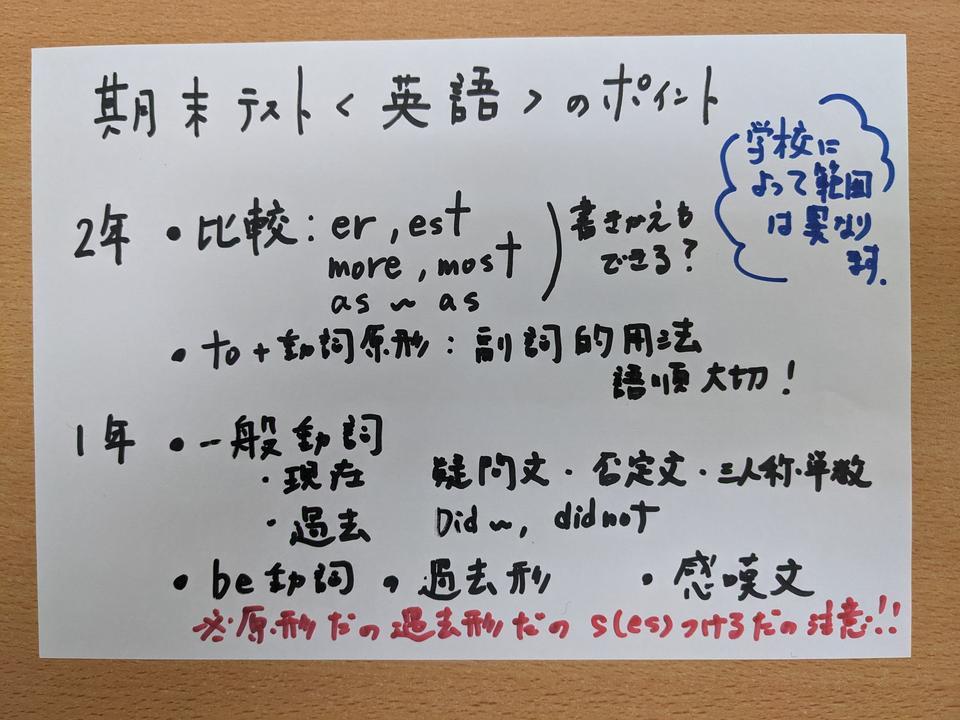 期末テスト<英語>のポイント
学校に
よって範囲
は異なり
ます.
2年 • 比較: er , est
more , most
as ~ as
書きかえも
できる?
• to + 動詞原形 : 副詞的用法
語順大切!
1年 • 一般動詞
・現在 疑問文・否定文・三人称・単数
・過去 Did ~, did not
• be動詞の過去形 • 感嘆文
※原形だの過去形だの s(es)つけるだの注意!!